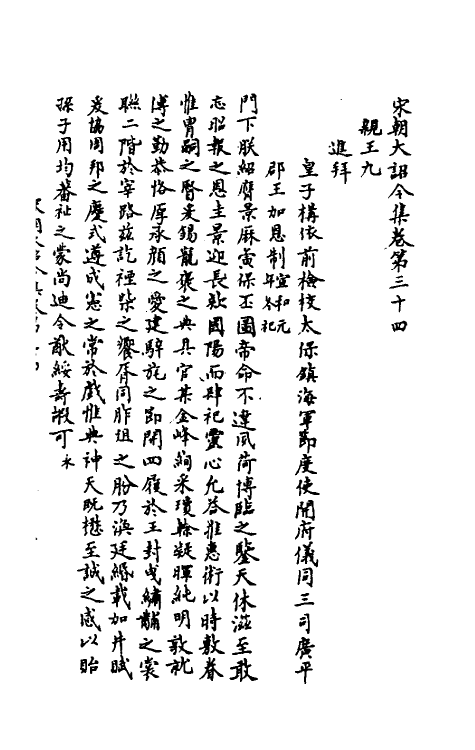 宋朝大詔令集卷第三十四
親王九
進拜
皇子構依前檢校太保鎮海軍節度使開府儀同三司廣平
郡王加恩制宣和元年冬祀
門下朕紹膺景厤寅保丕圖帝命不違夙荷博臨之鑒天休滋至敢
忘昭報之恩主景迎長款國陽而肆祀靈心允荅推惠術以時敷眷
惟胄嗣之賢爰錫寵襃之典具官某金峰絢采瓊榦凝暉純明敦就
傅之勤恭恪厚承顏之愛建騂旄之節開四履於王封曳繡黼之裳
聯二階於宰路兹訖禋柴之饗胥同胙俎之肦乃渙廷綸載加井賦
爰協周邦之慶式遵成憲之常於戲惟典神天既懋至誠之感以貽
孫子用均蕃祉之蒙尚迪令猷綏壽嘏可